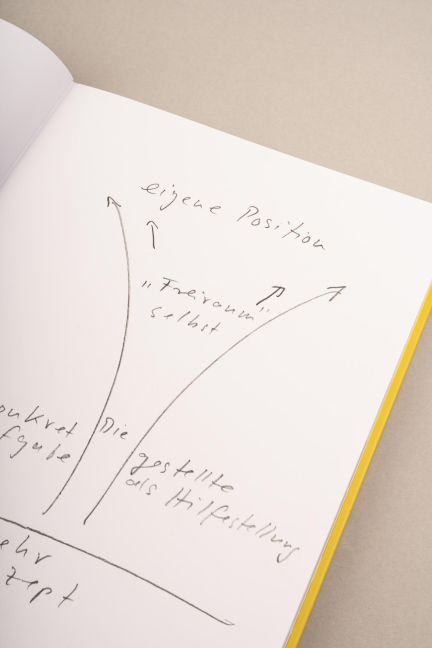 eigene Position
„Freiraum“
selbst
onkret Die gestellte
fgabe als Hilfestellung
ehr
zept